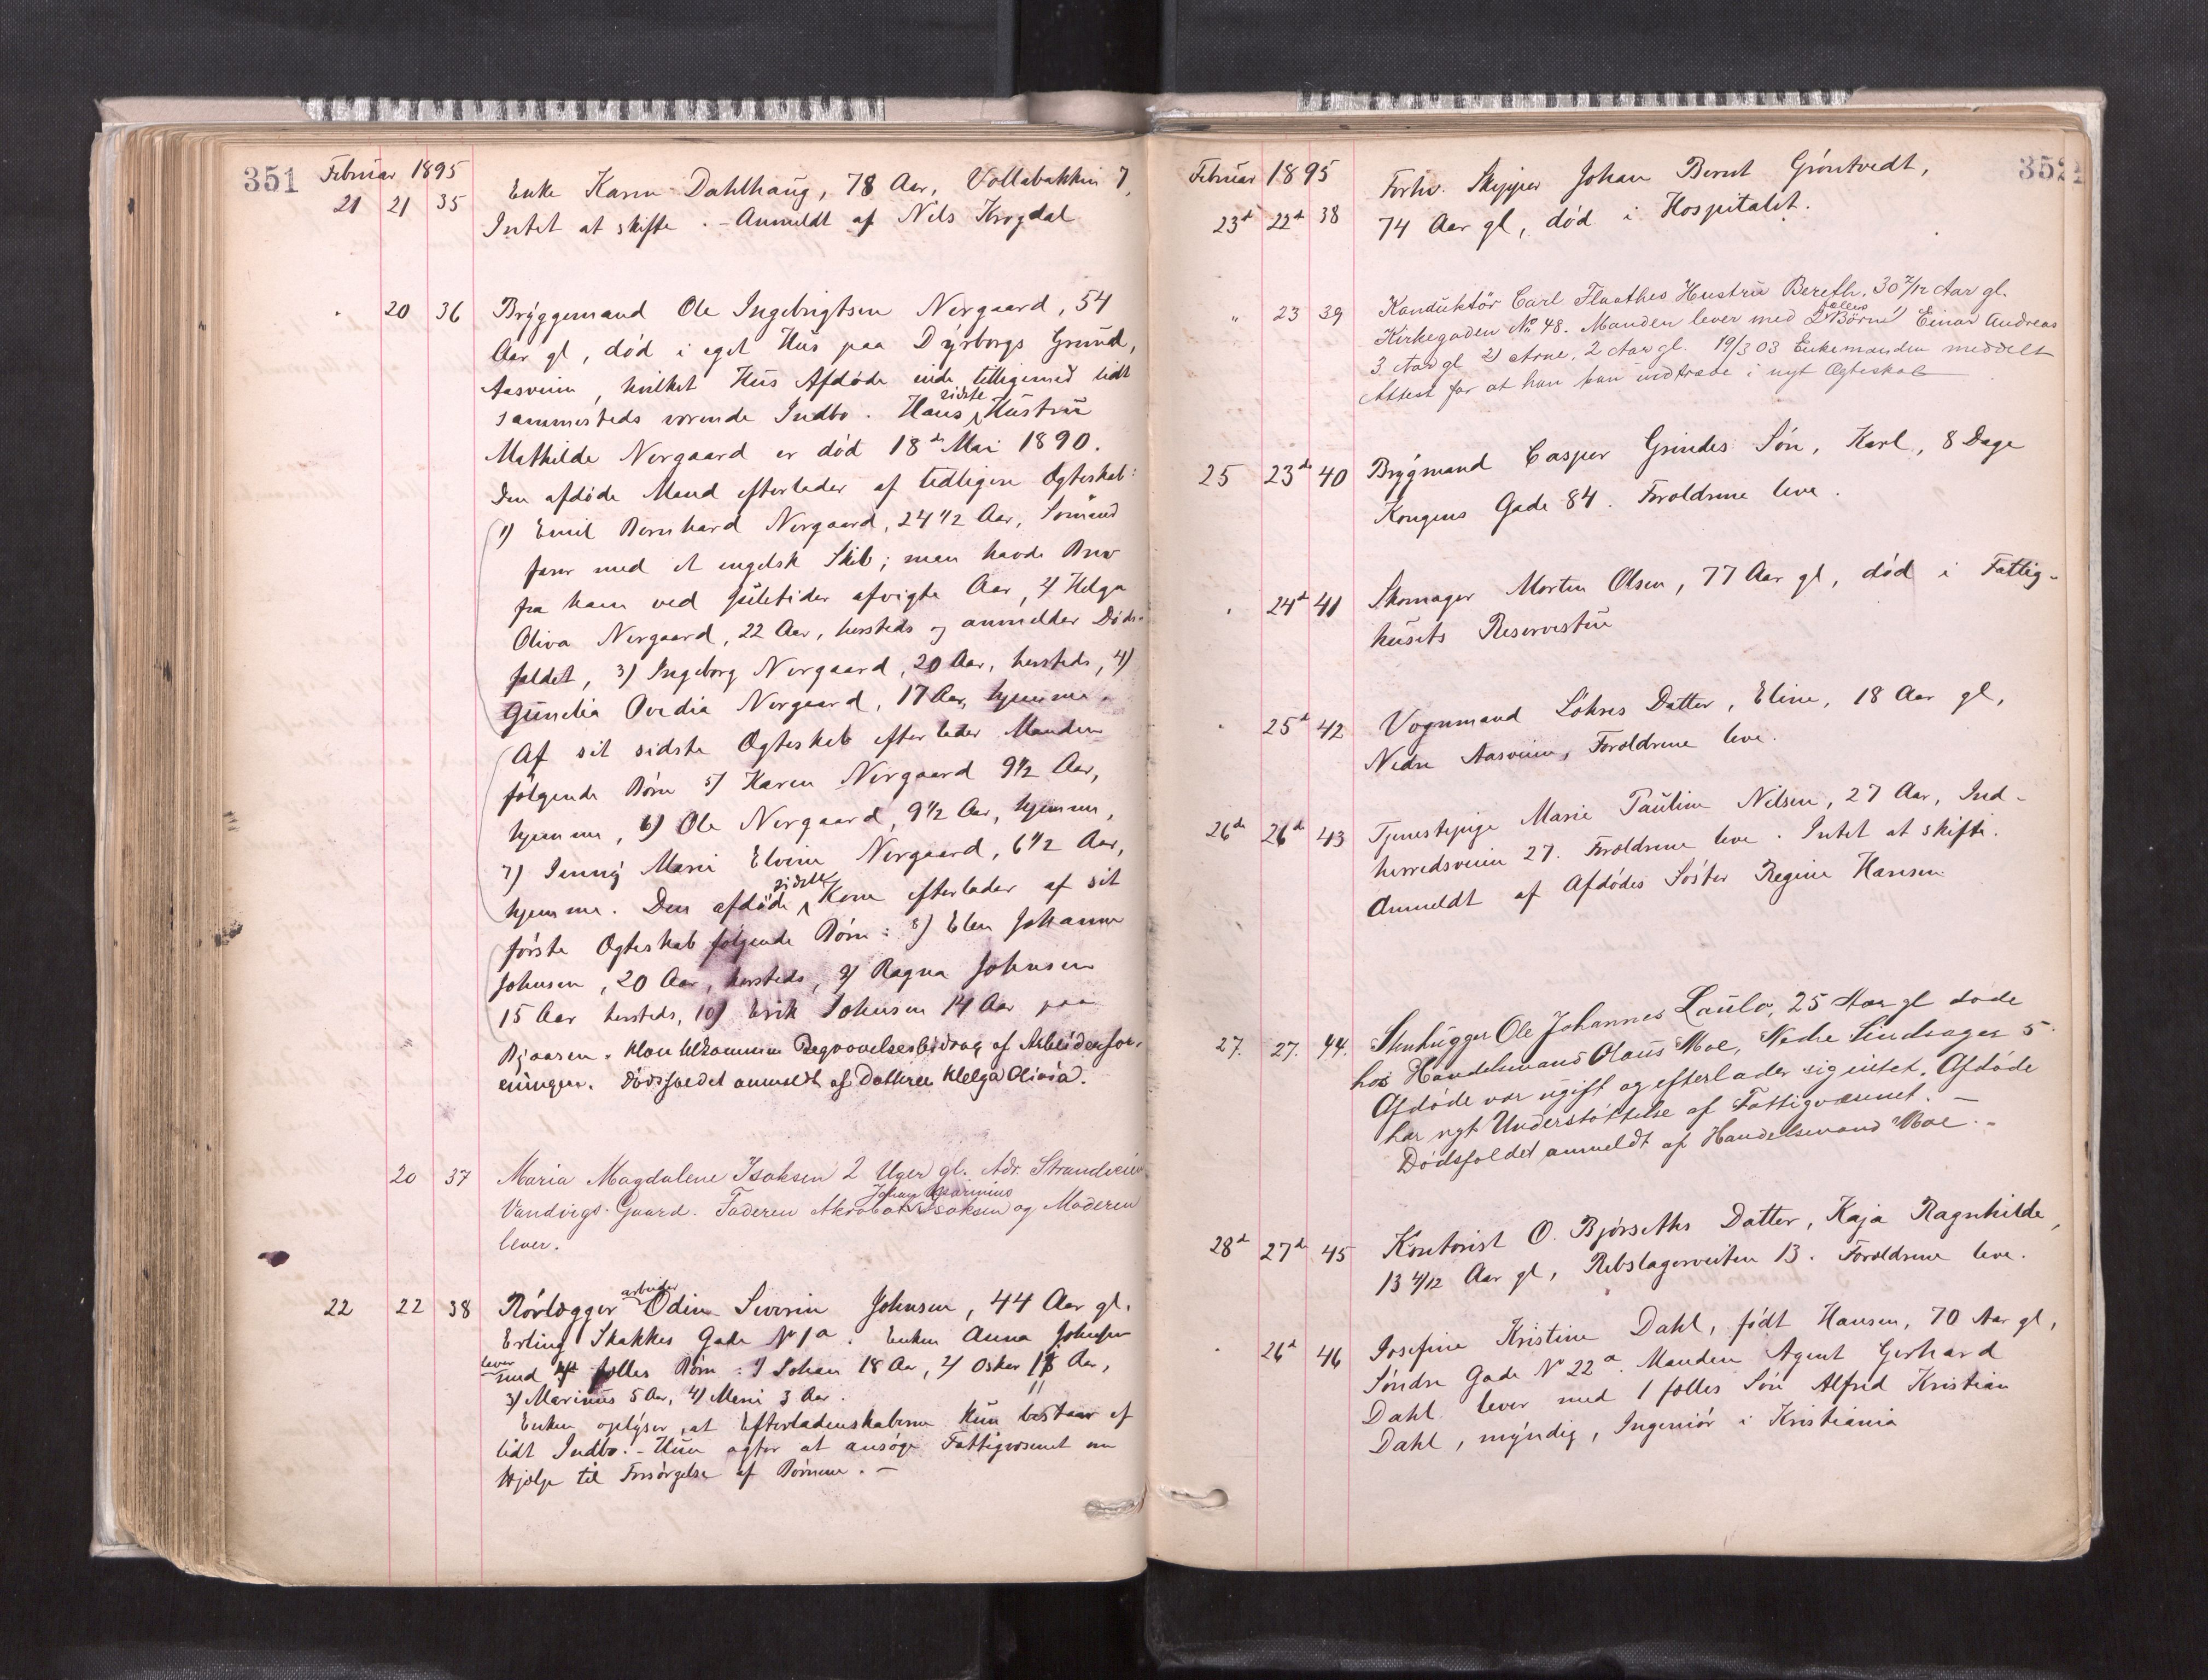 351
Februar 1895
21 21 35 Enke Karen Dahlhaug, 78 Aar, Vollabakken 7,
Intet at skifte. - Anmeldt af Nils Krogdal
20 36 Bryggemand Ole Ingebrigtsen Nergaard, 54
Aar gl, død i eget Hus paa Dyrborgs Grund,
Aasveien, hvilket Hus Afdøde eiede tilligemed lidt
sammesteds værende Indbo. Hans sidste Hustru
Mathilde Nergaard er død 18de Mai 1890.
Den afdøde Mand efterlader af tidligere Ægteskab:
1) Emil Bernhard Nergaard, 24 1/2 Aar, Sømand
farer med et engelsk Skib; man havde Brev
fra ham ved Juletider afvigte Aar, 2) Helga
Oliva Nergaard, 22 Aar, hersteds og anmelder Døds-
faldet, 3) Ingeborg Nergaard, 20 Aar, hersteds, 4)
Gunelia Ovedia Nergaard, 17 Aar, hjemme.
Af sit sidste Ægteskab efterlader Manden
følgende Børn 5) Karen Nergaard 9 1/2 Aar,
hjemme, 6) Ole Nergaard, 9 1/2 Aar, hjemme,
7) Jenny Marie Elvine Nergaard, 6 1/2 Aar,
hjemme. Den afdøde sidste Kone efterlader af sit
første Ægteskab følgende Børn: 8) Elen Johanne
Johnsen, 20 Aar, hersteds, 9) Ragna Johnsen
15 Aar hersteds, 10) Erik Johnsen 14 Aar paa
Bjaaren. Begravelsesbidrag af Arbeiderfor-
eningen. Dødsfaldet anmeldt af Datteren Helga Olivia.
20 37 Maria Magdalene Isaksen 2 Uger gl. Adr. Strandveien
Vandvigs Gaard. Faderen Akrobat Johan Marinius Isaksen og Moderen
lever.
22 22 38 Rørlæggerarbeider Odin Severin Johnsen, 44 Aar gl.
Erling Skakkes Gade No 1a. Enken Anna Johnsen
lever med 4 fælles Børn: 1) Johan 18 Aar, 2) Oskar 11 Aar,
3) Marinus 5 Aar, 4) Marie 3 Aar.
Enken oplyser, at Efterladenskaberne kun bestaar af
lidt Indbo. - Hun agter at ansøge Fattigvæsenet om
Hjælp til Forsørgelse af Børnene. -
352
Februar 1895
23d 22d 38 Forhv. Skipper Johan Bernt Grøntvedt,
74 Aar gl, død i Hospitalet.
" 23 39 Konduktör Carl Flaathes Hustru Bereth, 30 7/12 Aar gl.
Kirkegaden No 48. Manden lever med 2 fælles Børn 1) Einar Andreas
3 Aar gl 2) Arne, 2 Aar gl. 19/3 03 Enkemanden meddelt
Attest for at han kan indtræde i nyt Ægteskab
25 23de 40 Brygmand Casper Grindes Søn, Karl, 8 Dage
Kongens Gade 84. Forældrene leve.
24d 41 Skomager Morten Olsen, 77 Aar gl, død i Fattig-
husets Reservestue
25d 42 Vognmand Løkres Datter, Eline, 18 Aar gl,
Nedre Aasveien, Forældrene leve.
26de 26de 43 Tjenestepige Marie Pauline Nilsen, 27 Aar, Ind-
herredsveien 27. Forældrene leve. Intet at skifte.
Anmeldt af Afdødes Søster Regine Hansen
27. 27. 44. Stenhugger Ole Johannes Laulo, 25 Aar gl døde
hos Handelsmand Olaus Moe, Nedre Singsager 5.
Afdøde var ugift og efterlader sig intet. Afdøde
har nydt Understøttelse af Fattigvæsenet. -
Dødsfaldet anmeldt af Handelsmand Moe. -
28d 27de 45 Kontorist O. Bjørseths Datter, Kaja Ragnhilde,
13 4/12 Aar gl, Rebslagerveiten 13. Forældrene leve.
26d 46 Josefine Kristine Dahl, født Hansen, 70 Aar gl,
Søndre Gade No 22a. Manden Agent Gerhard
Dahl lever med 1 fælles Søn Alfred Kristian
Dahl, myndig, Ingeniør i Kristiania